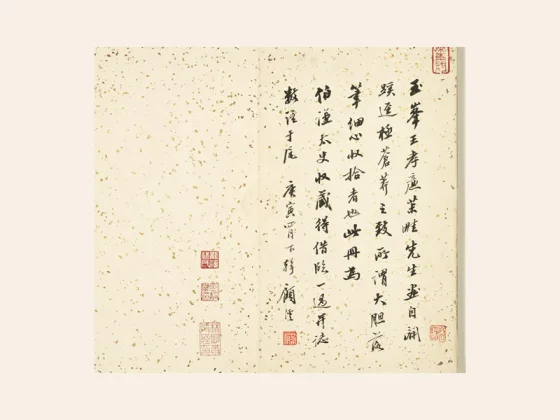 玉峯王孝廉茮畦先生画自開
蹊逕極蒼莽之致所謂大胆落
筆細心收拾者也此冊為
伯謹太史收藏得借臨一過并志
數語于尾 庚寅四月下澣 顧澐